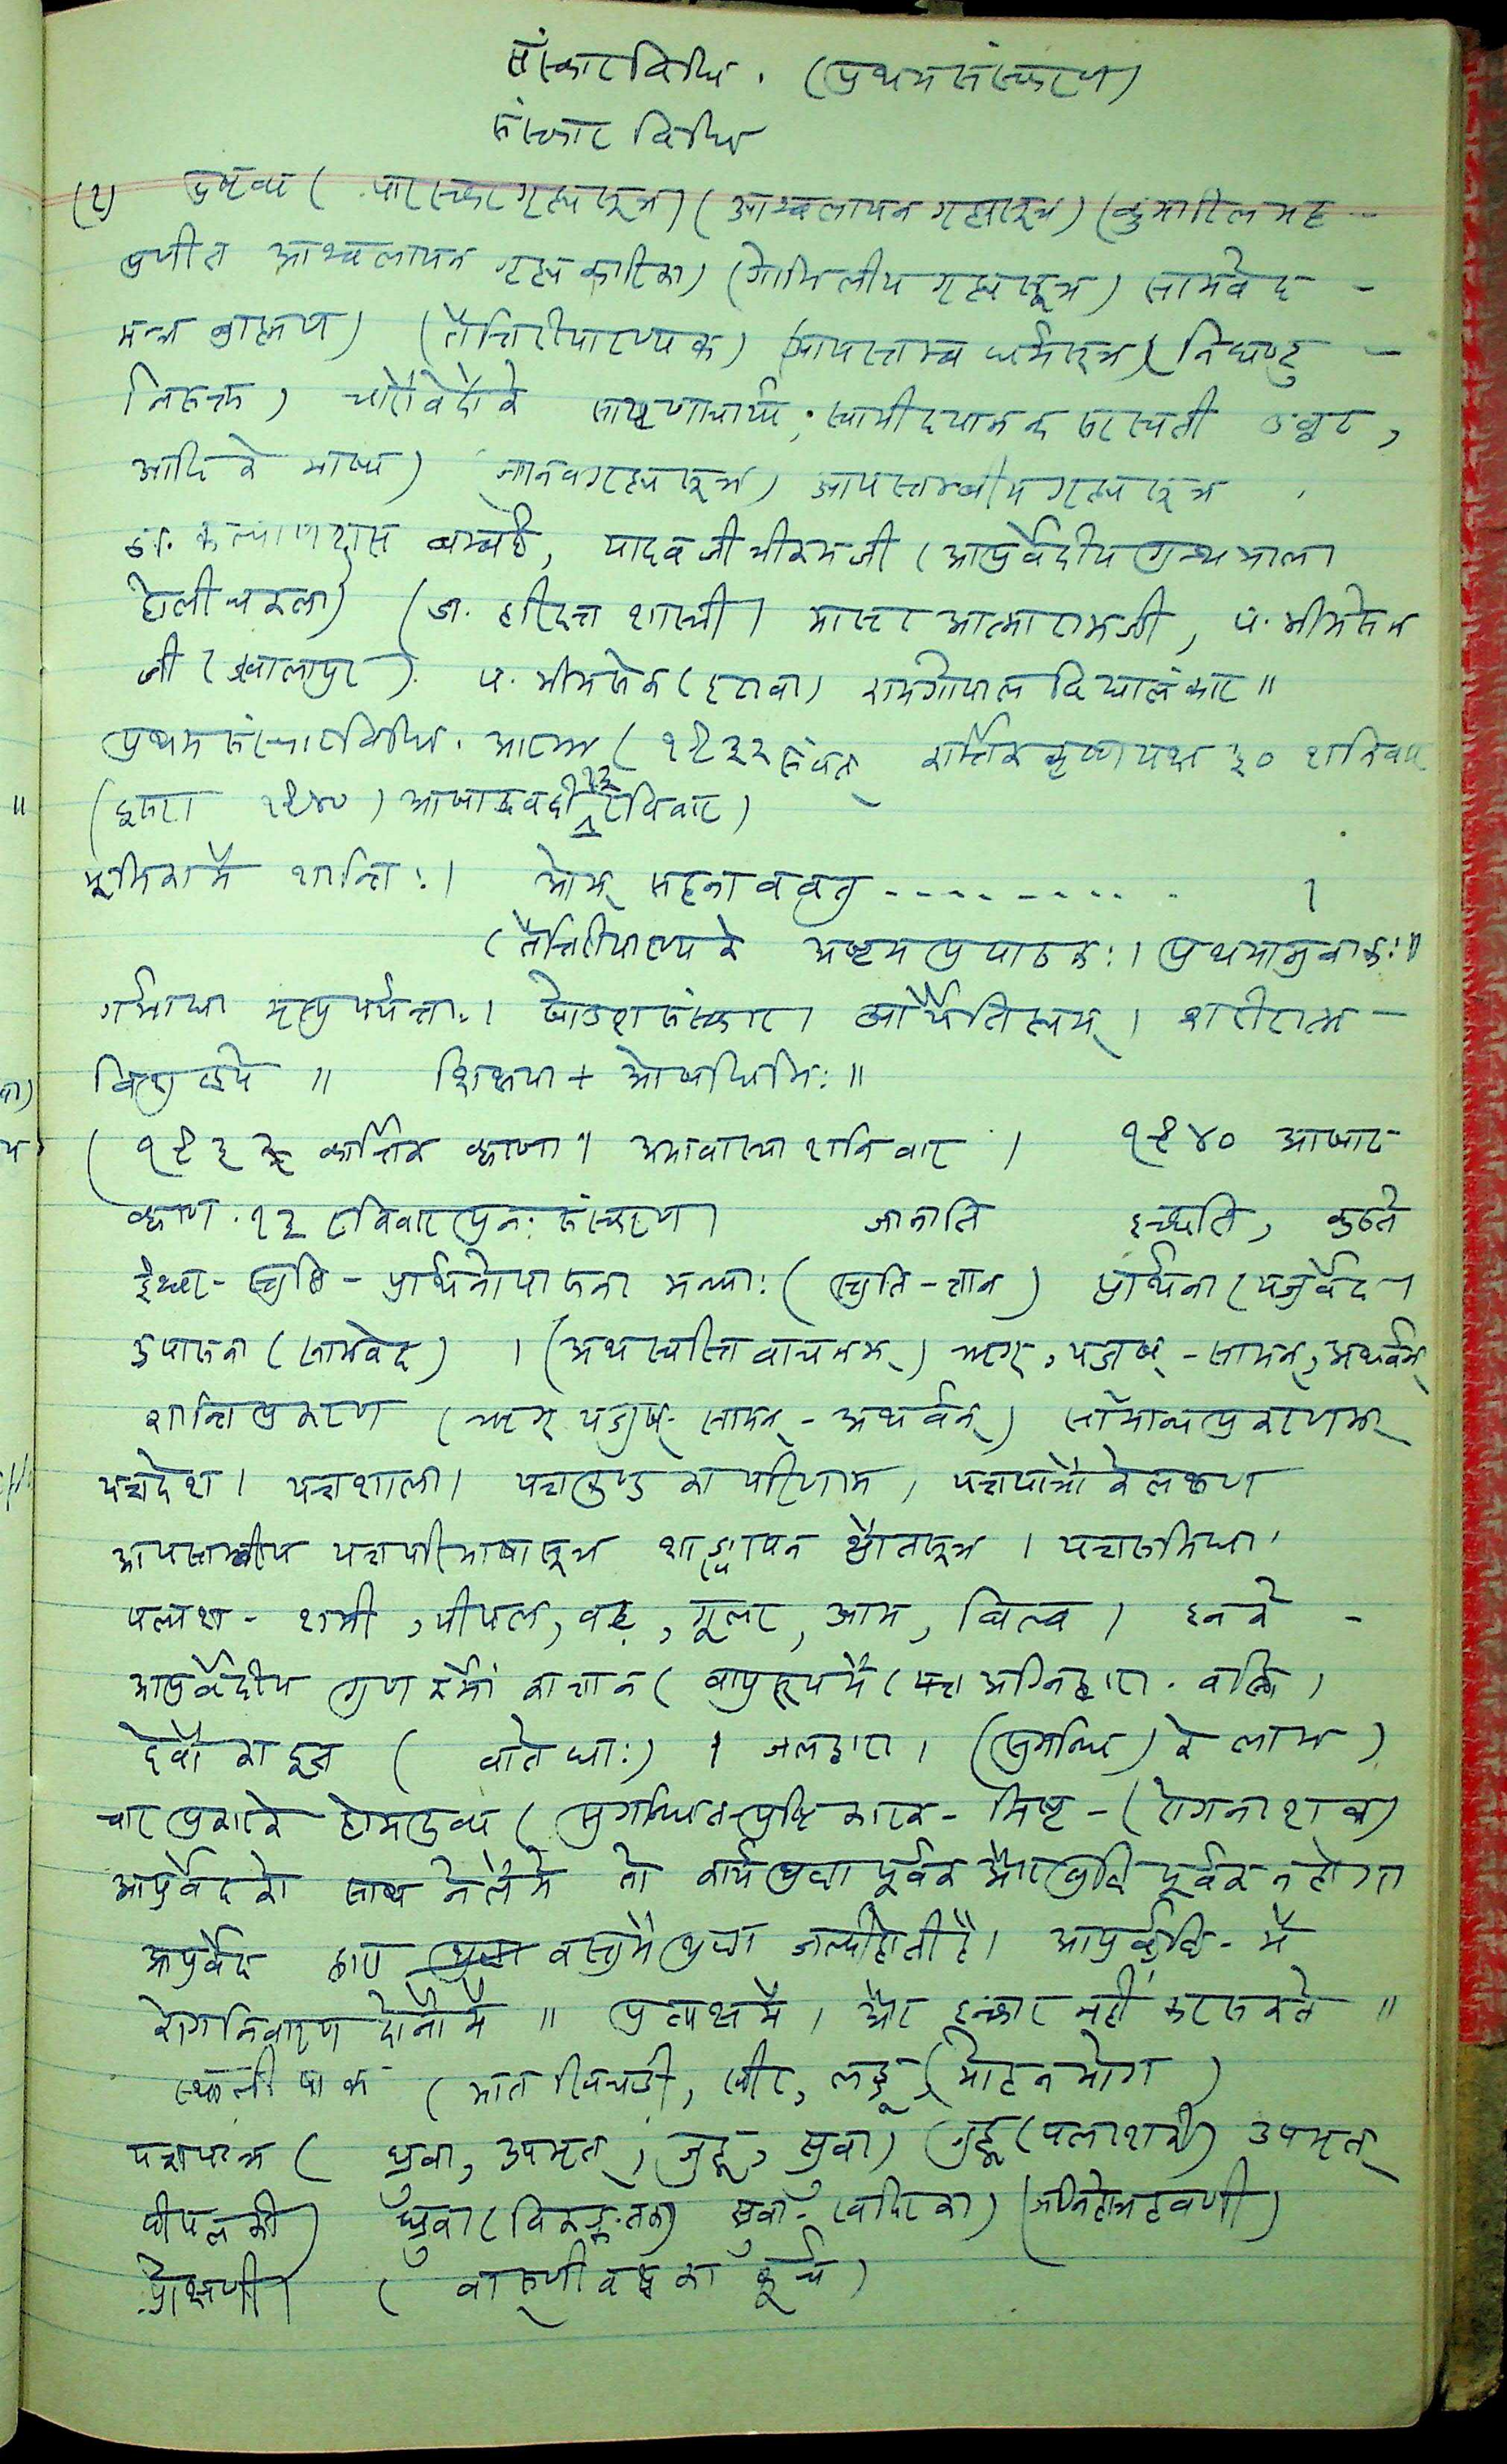 संस्कारविधि . (प्रथमसंस्करण)
संस्कार विधि
(१) द्रष्टव्य ( पारस्करगृह्यसूत्र) (आश्वलायन गृह्यसूत्र) (कुमारिल भट्ट --
प्रणीत आश्वलायन गृह्य कारिका) (गोभिलीय गृह्यसूत्र) सामवेद -
मन्त्र ब्राह्मण) (तैत्तिरीयारण्यक) (आपस्तम्ब धर्मसूत्र) (निघण्टु -
निरुक्त) चारों वेदों के सायणाचार्य, स्वामी दयानन्द सरस्वती उव्वट,
आदि के भाष्य) मानवगृह्यसूत्र) आपस्तम्बीय गृह्यसूत्र ,
डा. कल्याणदास बम्बई, यादव जी त्रीकमजी (आयुर्वेदीय ग्रन्थमाला
होली चकला) (डा. हरिदत्त शास्त्री। मास्टर आत्मारामजी, पं. भीमसेन
जी (ज्वालापुर) पं. भीमसेन (इटावा) रामगोपाल विद्यालंकार ॥
प्रथम संस्कारविधि. आरम्भ (१९३२ संवत् कार्त्तिक कृष्णपक्ष ३० शनिवार
(दूसरा १९४०) आषाढ वदी १३ रविवार)
भूमिका में शान्तिः। ओम् सहनाववतु ----------- ।
(तैत्तिरीयारण्यके अष्टम प्रपाठकः। प्रथमानुवाकः॥
गर्भाद्या मृत्युपर्यन्ताः। षोडश संस्कार। शरीरात्म -
विशुद्धये ॥ शिक्षया + ओषधिभिः॥
( १९३२ कार्त्तिक कृष्ण ॥ अमावास्या शनिवार । १९४० आषाढ
कृष्ण. १३ रविवार पुनः संस्करण। जानाति इच्छति, कुरुते
ईश्वर - स्तुति - प्रार्थनोपासना मन्त्राः (स्तुति - ज्ञान) प्रार्थना (यजुर्वेद।
उपासना (सामवेद) । (अथ स्वस्तिवाचनम्) ऋग्, यजुष् - सामन्, अथर्वन्
शान्तिप्रकरण (ऋग् यजुष्- सामन् - अथर्वन्) सामान्यप्रकरणम्
यज्ञदेश। यज्ञशाला। यज्ञकुण्ड का परिणाम, यज्ञपात्रों के लक्षण
आपस्तम्बीय यज्ञपरिभाषासूत्र शाङ्खायन श्रौतसूत्र । यज्ञसमिधा
पलाश - शमी, पीपल, बड़, गूलर, आम, बिल्व । इनके -
आयुर्वेदीय गुण कर्मों का ज्ञान (वायुरूप में (यज्ञ अग्नि द्वारा. वह्नि।
देवों का दूत ( ) । जलद्वारा। (सुगन्धि) के लाभ)
चार प्रकार के होमद्रव्य (सुगन्धित - पुष्टि कारक - मिष्ट - (रोगनाशक)
आयुर्वेद को साथ न लेंगे तो कार्य श्रद्धा पूर्वक और बुद्धि पूर्वक न होगा
आयुर्वेद द्वारा वस्तु में श्रद्धा जल्दी होती है। में
रोगनिवारण दोनों में ॥ प्रत्यक्ष में, और इन्कार नहीं कर सकते ॥
स्थाली पाक (भात खिचडी, खीर, लड्डू (मोहन भोग)
यज्ञपात्र ( ध्रुवा, उपभृत्, जुहू, स्रुवा) जुहू (पलाश की) उपभृत्
पीपल की) ध्रुवा (विकङ्कत की) स्रुवा - खदिर का) (अग्निहोत्रहवणी)
प्रोक्षणी। ( का कूर्च)